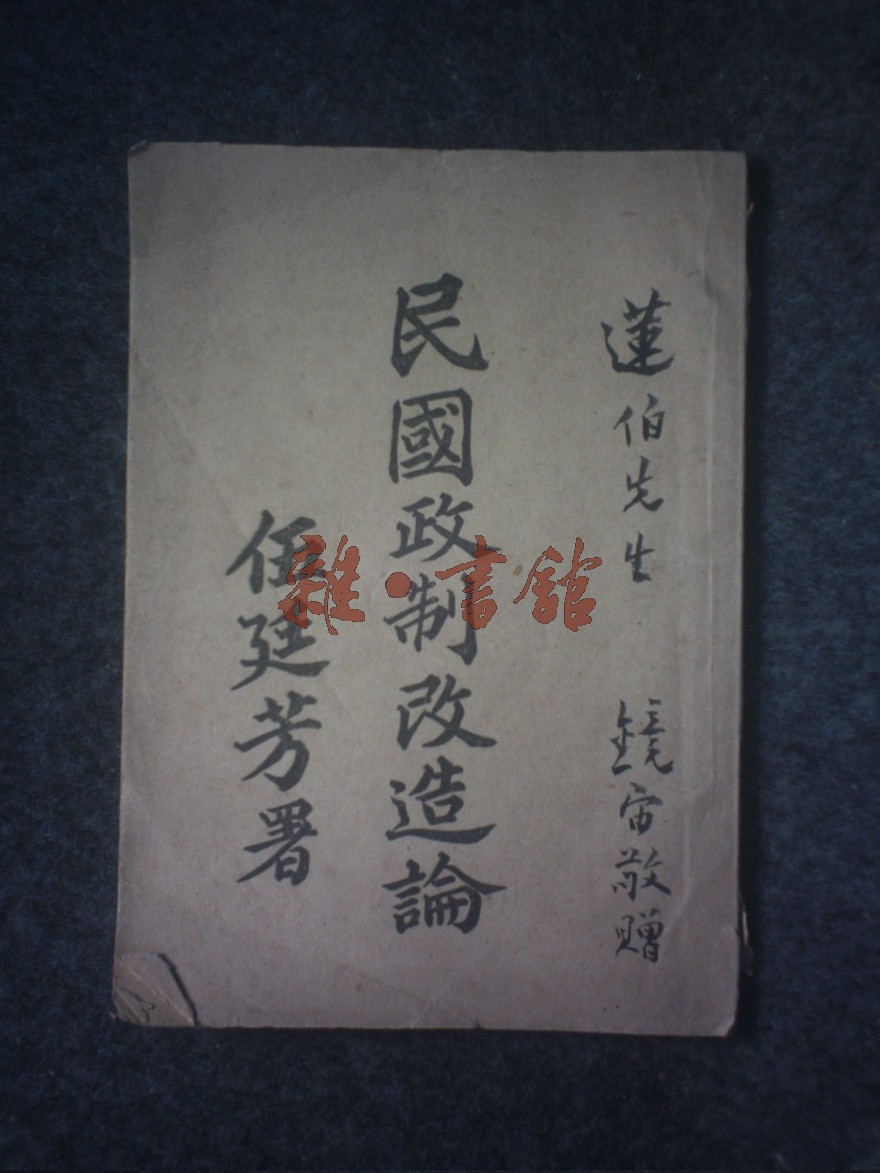 蓮伯先生 鏡宙敬贈
民國政制改造論
伍廷芳署
雜·書館